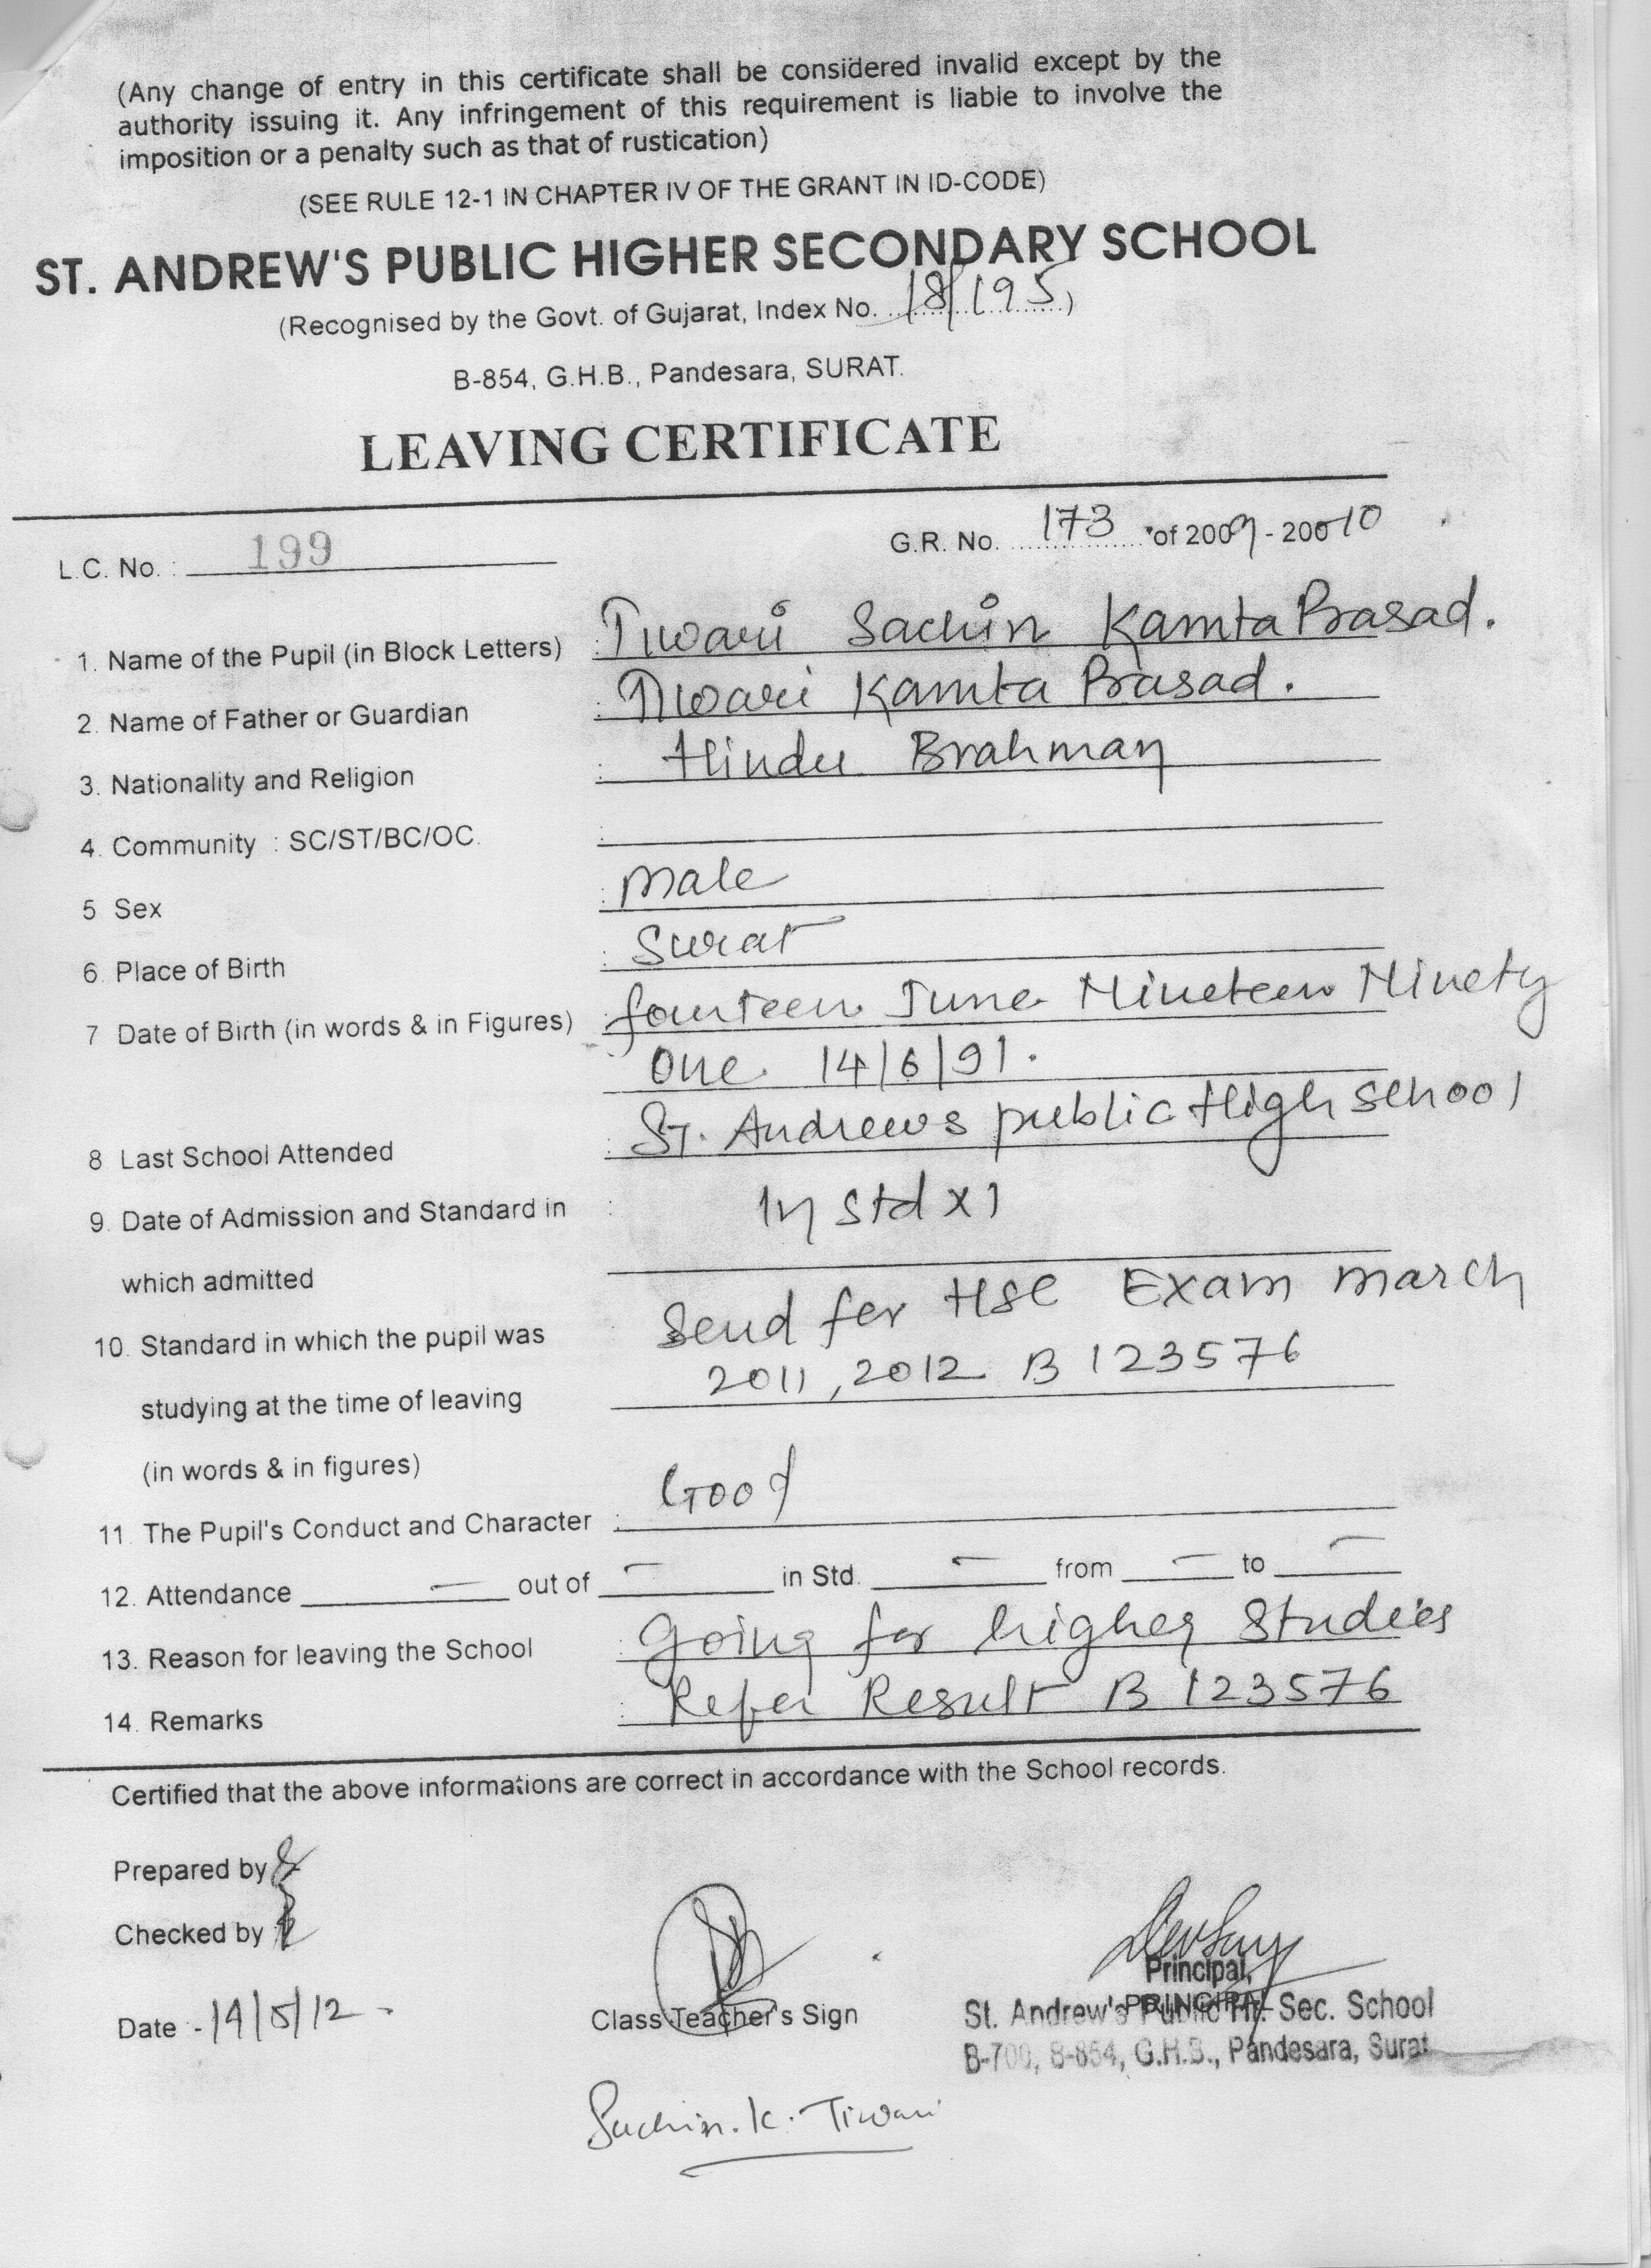 (Any change of entry in this certificate shall be considered invalid except by the
authority issuing it. Any infringement of this requirement is liable to involve the
imposition or a penalty such as that of rustication)
(SEE RULE 12-1 IN CHAPTER IV OF THE GRANT IN ID-CODE)
ST. ANDREW'S PUBLIC HIGHER SECONDARY SCHOOL
(Recognised by the Govt. of Gujarat, Index No. 18/195)
B-854, G.H.B., Pandesara, SURAT.
LEAVING CERTIFICATE
L.C. No. : 199 G.R. No. 173 of 2009 - 20010
1. Name of the Pupil (in Block Letters) : Tiwari Sachin Kamta Prasad.
2. Name of Father or Guardian : Tiwari Kamta Prasad.
3. Nationality and Religion : Hindu Brahman
4. Community : SC/ST/BC/OC. :
5 Sex : male
6. Place of Birth : Surat
7 Date of Birth (in words & in Figures) : fourteen June Nineteen Ninety
One 14/6/91.
8 Last School Attended : St. Andrews public High School
9. Date of Admission and Standard in : In Std XI
which admitted
10. Standard in which the pupil was : Send for HSC Exam march
2011, 2012 B 123576
studying at the time of leaving
(in words & in figures)
11. The Pupil's Conduct and Character : Good
12. Attendance — out of — in Std. — from — to —
13. Reason for leaving the School : Going for higher Studies
14. Remarks : Refer Result B 123576
Certified that the above informations are correct in accordance with the School records.
Prepared by
Checked by
Date :- 14/5/12 -
Class Teacher's Sign
Principal,
PRINCIPAL
St. Andrew's Public Hr. Sec. School
B-700, B-854, G.H.B., Pandesara, Surat
Sachin. K. Tiwari